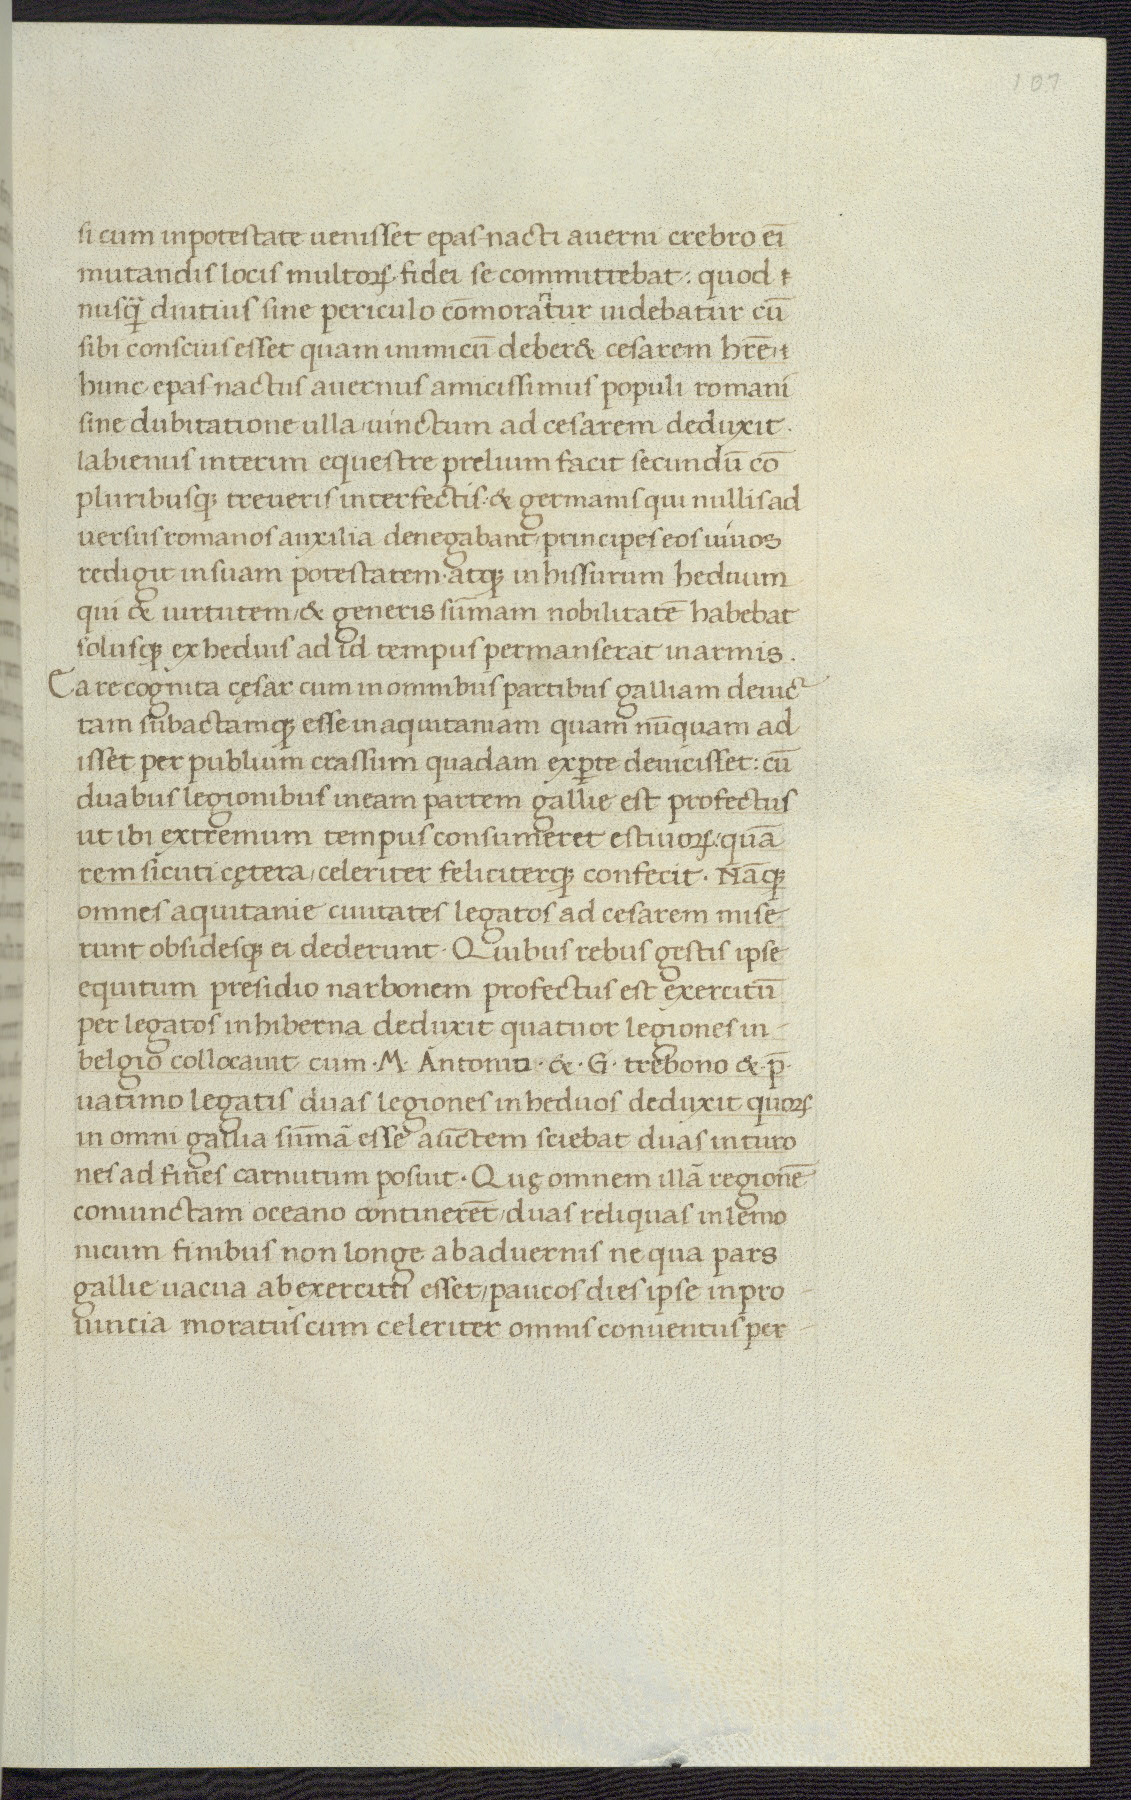 107
si cum in potestate uenisset epasnacti auerni crebro eī
mutandis locis multoꝝ fidei se committebat: quod &
nusq̄ diutius sine periculo cōmoratur uidebatur cū
sibi conscius esset quam inimicū deber& cesarem hrē &
hunc epasnactus auernus amicissimus populi romani
sine dubitatione ulla uinctum ad cesarem deduxit.
labienus interim equestre prelium facit secundū cō
pluribusq; treueris interfectis & germanis qui nullis ad
uersus romanos auxilia denegabant principes eos uiuos
redigit in suam potestatem atq; in his surum heduum
qui & uirtutem & generis sūmam nobilitatē habebat
solusq; ex heduis ad id tempus permanserat in armis.
Ea re cognita cęsar cum in omnibus partibus galliam deuic
tam subactamq; esse in aquitaniam quam nūquam ad
isset per publium crassum quadam exꝑte deuicisset: cū
duabus legionibus in eam partem gallie est profectus
ut ibi extremum tempus consumeret estiuoꝝ: quā
rem sicuti cętera celeriter feliciterq; confecit. Nāq;
omnes aquitanie ciuitates legatos ad cesarem mise
runt obsidesq; ei dederunt. Quibus rebus gestis ipse
equitum presidio narbonem profectus est exercitū
per legatos in hiberna deduxit quatuor legiones in
belgio collocauit cum. M. Antonio. &. G. trebonio & p̄.
uatinio legatis duas legiones in heduos deduxit quoꝝ
in omni gallia sūmā esse auctem sciebat duas in turo
nes ad fines carnutum posuit. Quę omnem illā regionē
coniunctam oceano continerēt duas reliquas in lemo
uicum finibus non longe ab aduernis ne qua pars
gallie uacua ab exercitu esset paucos dies ipse in pro
uincia moratus cum celeriter omnis conuentus per